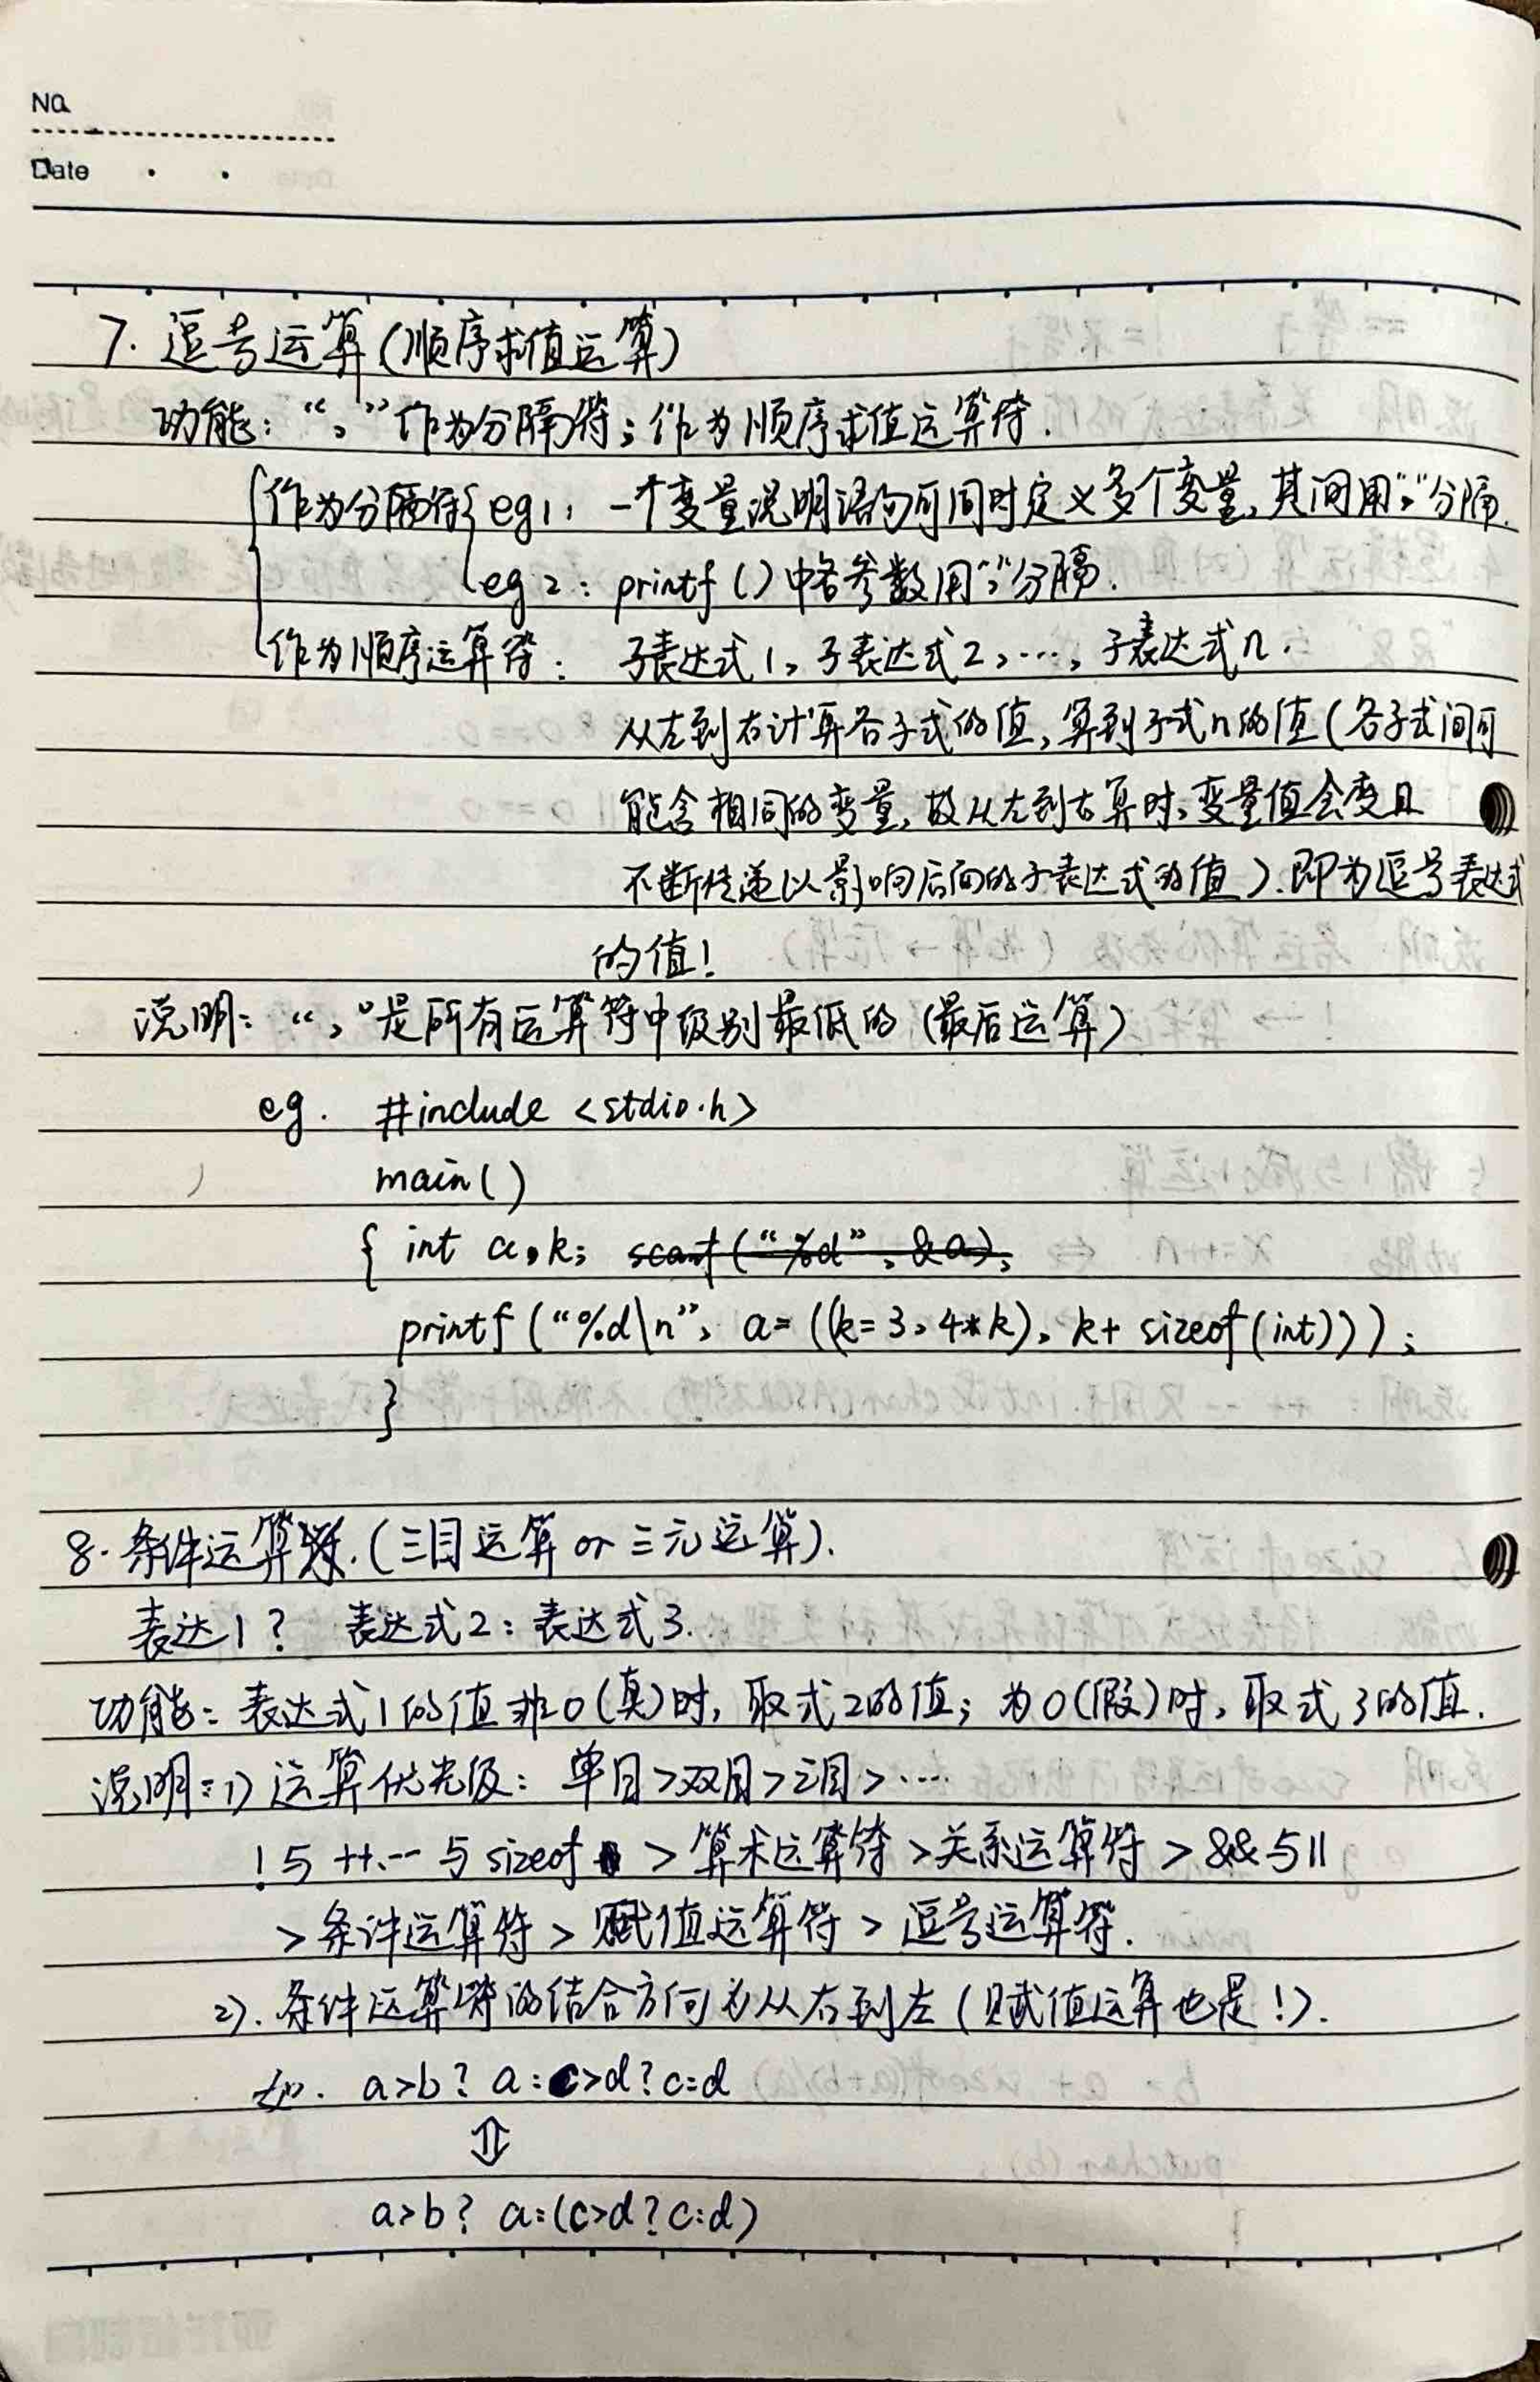 No.
Date
7. 逗号运算(顺序求值运算)
功能: “,”作为分隔符;作为顺序求值运算符.
作为分隔符 eg1: 一个变量说明语句可同时定义多个变量,其间用“,”分隔.
eg2: printf()中各参数用“,”分隔.
作为顺序运算符: 子表达式1,子表达式2,…,子表达式n.
从左到右计算各子式的值,算到子式n的值(各子式间可
能含相同的变量,故从左到右算时,变量值会变且
不断传递以影响后面的子表达式的值).即为逗号表达式
的值!
说明: “,”是所有运算符中级别最低的(最后运算)
eg. #include <stdio.h>
main()
{ int a,k; scanf(“%d”, &a);
printf(“%d\n”, a=((k=3,4*k), k+sizeof(int)));
}
8.条件运算.(三目运算 or 三元运算).
表达1? 表达式2:表达式3.
功能: 表达式1的值非0(真)时,取式2的值;为0(假)时,取式3的值.
说明: 1) 运算优先级: 单目>双目>三目>…
!与++、--与sizeof >算术运算符>关系运算符>&&与||
>条件运算符>赋值运算符>逗号运算符.
2).条件运算符的结合方向为从右到左(赋值运算也是!).
如. a>b? a:c>d?c:d
⇕
a>b? a:(c>d?c:d)